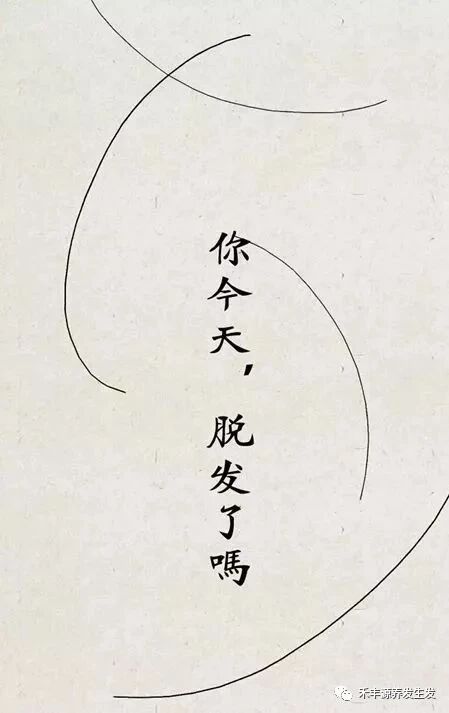 你今天，脱发了嗎
禾丰源养发生发